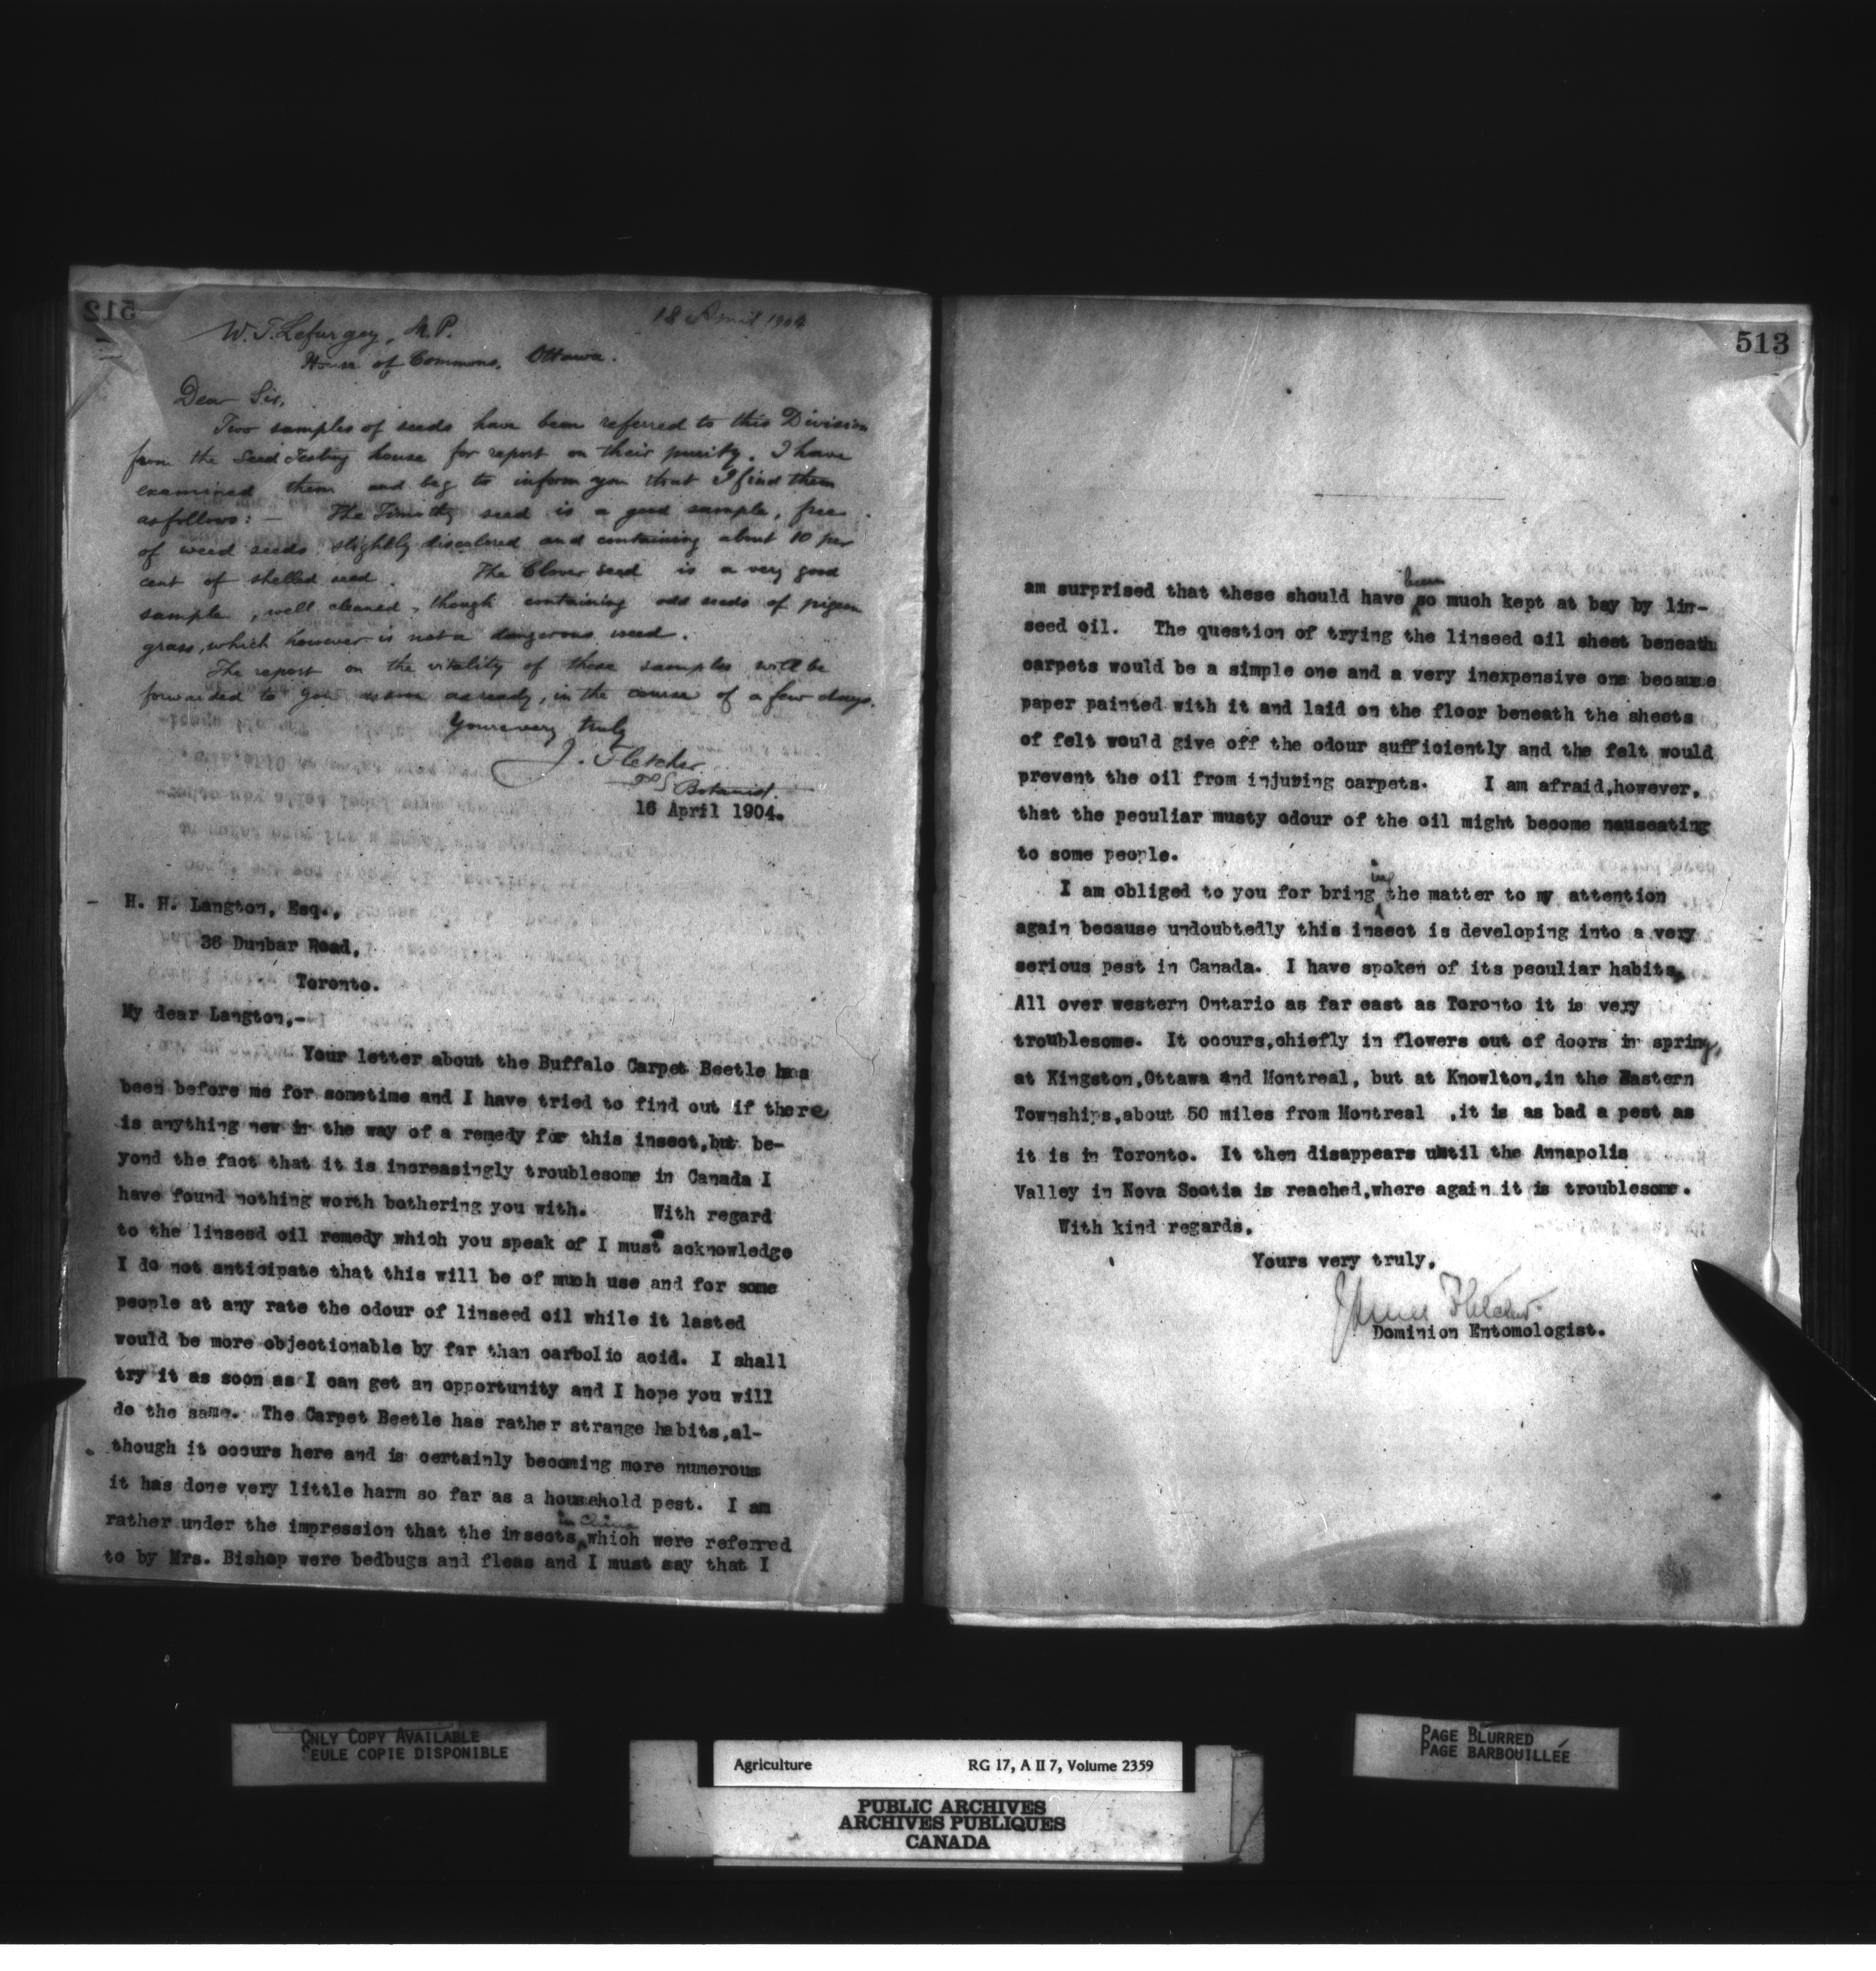 512
18 April 1904
W. T. Lefurgey, M.P.
House of Commons, Ottawa.
Dear Sir,
Two samples of seeds have been referred to this Division
from the Seed Testing house for report on their purity. I have
examined them and beg to inform you that I find them
as follows: — The Timothy seed is a good sample, free
of weed seeds slightly discolored and containing about 10 per
cent of shelled seed. The Clover seed is a very good
sample, well cleaned, though containing odd seeds of pigeon
grass, which however is not a dangerous weed.
The report on the vitality of these samples will be
forwarded to you as soon as ready, in the course of a few days.
Yours very truly
J. Fletcher
Botanist.
16 April 1904.
H. H. Langton, Esq.,
36 Dunbar Road,
Toronto.
My dear Langton,-
Your letter about the Buffalo Carpet Beetle has
been before me for sometime and I have tried to find out if there
is anything new in the way of a remedy for this insect,but be-
yond the fact that it is increasingly troublesome in Canada I
have found nothing worth bothering you with. With regard
to the linseed oil remedy which you speak of I must acknowledge
I do not anticipate that this will be of much use and for some
people at any rate the odour of linseed oil while it lasted
would be more objectionable by far than carbolic acid. I shall
try it as soon as I can get an opportunity and I hope you will
do the same. The Carpet Beetle has rather strange habits,al-
though it occurs here and is certainly becoming more numerous
it has done very little harm so far as a household pest. I am
rather under the impression that the insects in China which were referred
to by Mrs. Bishop were bedbugs and fleas and I must say that I
513
am surprised that these should have been so much kept at bay by lin-
seed oil. The question of trying the linseed oil sheet beneath
carpets would be a simple one and a very inexpensive one because
paper painted with it and laid on the floor beneath the sheets
of felt would give off the odour sufficiently and the felt would
prevent the oil from injuring carpets. I am afraid,however,
that the peculiar musty odour of the oil might become nauseating
to some people.
I am obliged to you for bringing the matter to my attention
again because undoubtedly this insect is developing into a very
serious pest in Canada. I have spoken of its peculiar habits,
All over western Ontario as far east as Toronto it is very
troublesome. It occurs,chiefly in flowers out of doors in spring,
at Kingston,Ottawa and Montreal, but at Knowlton,in the Eastern
Townships,about 50 miles from Montreal ,it is as bad a pest as
it is in Toronto. It then disappears until the Annapolis
Valley in Nova Scotia is reached,where again it is troublesome.
With kind regards,
Yours very truly,
James Fletcher
Dominion Entomologist.
ONLY COPY AVAILABLE
SEULE COPIE DISPONIBLE
PAGE BLURRED
PAGE BARBOUILLÉE
Agriculture RG 17, A II 7, Volume 2359
PUBLIC ARCHIVES
ARCHIVES PUBLIQUES
CANADA